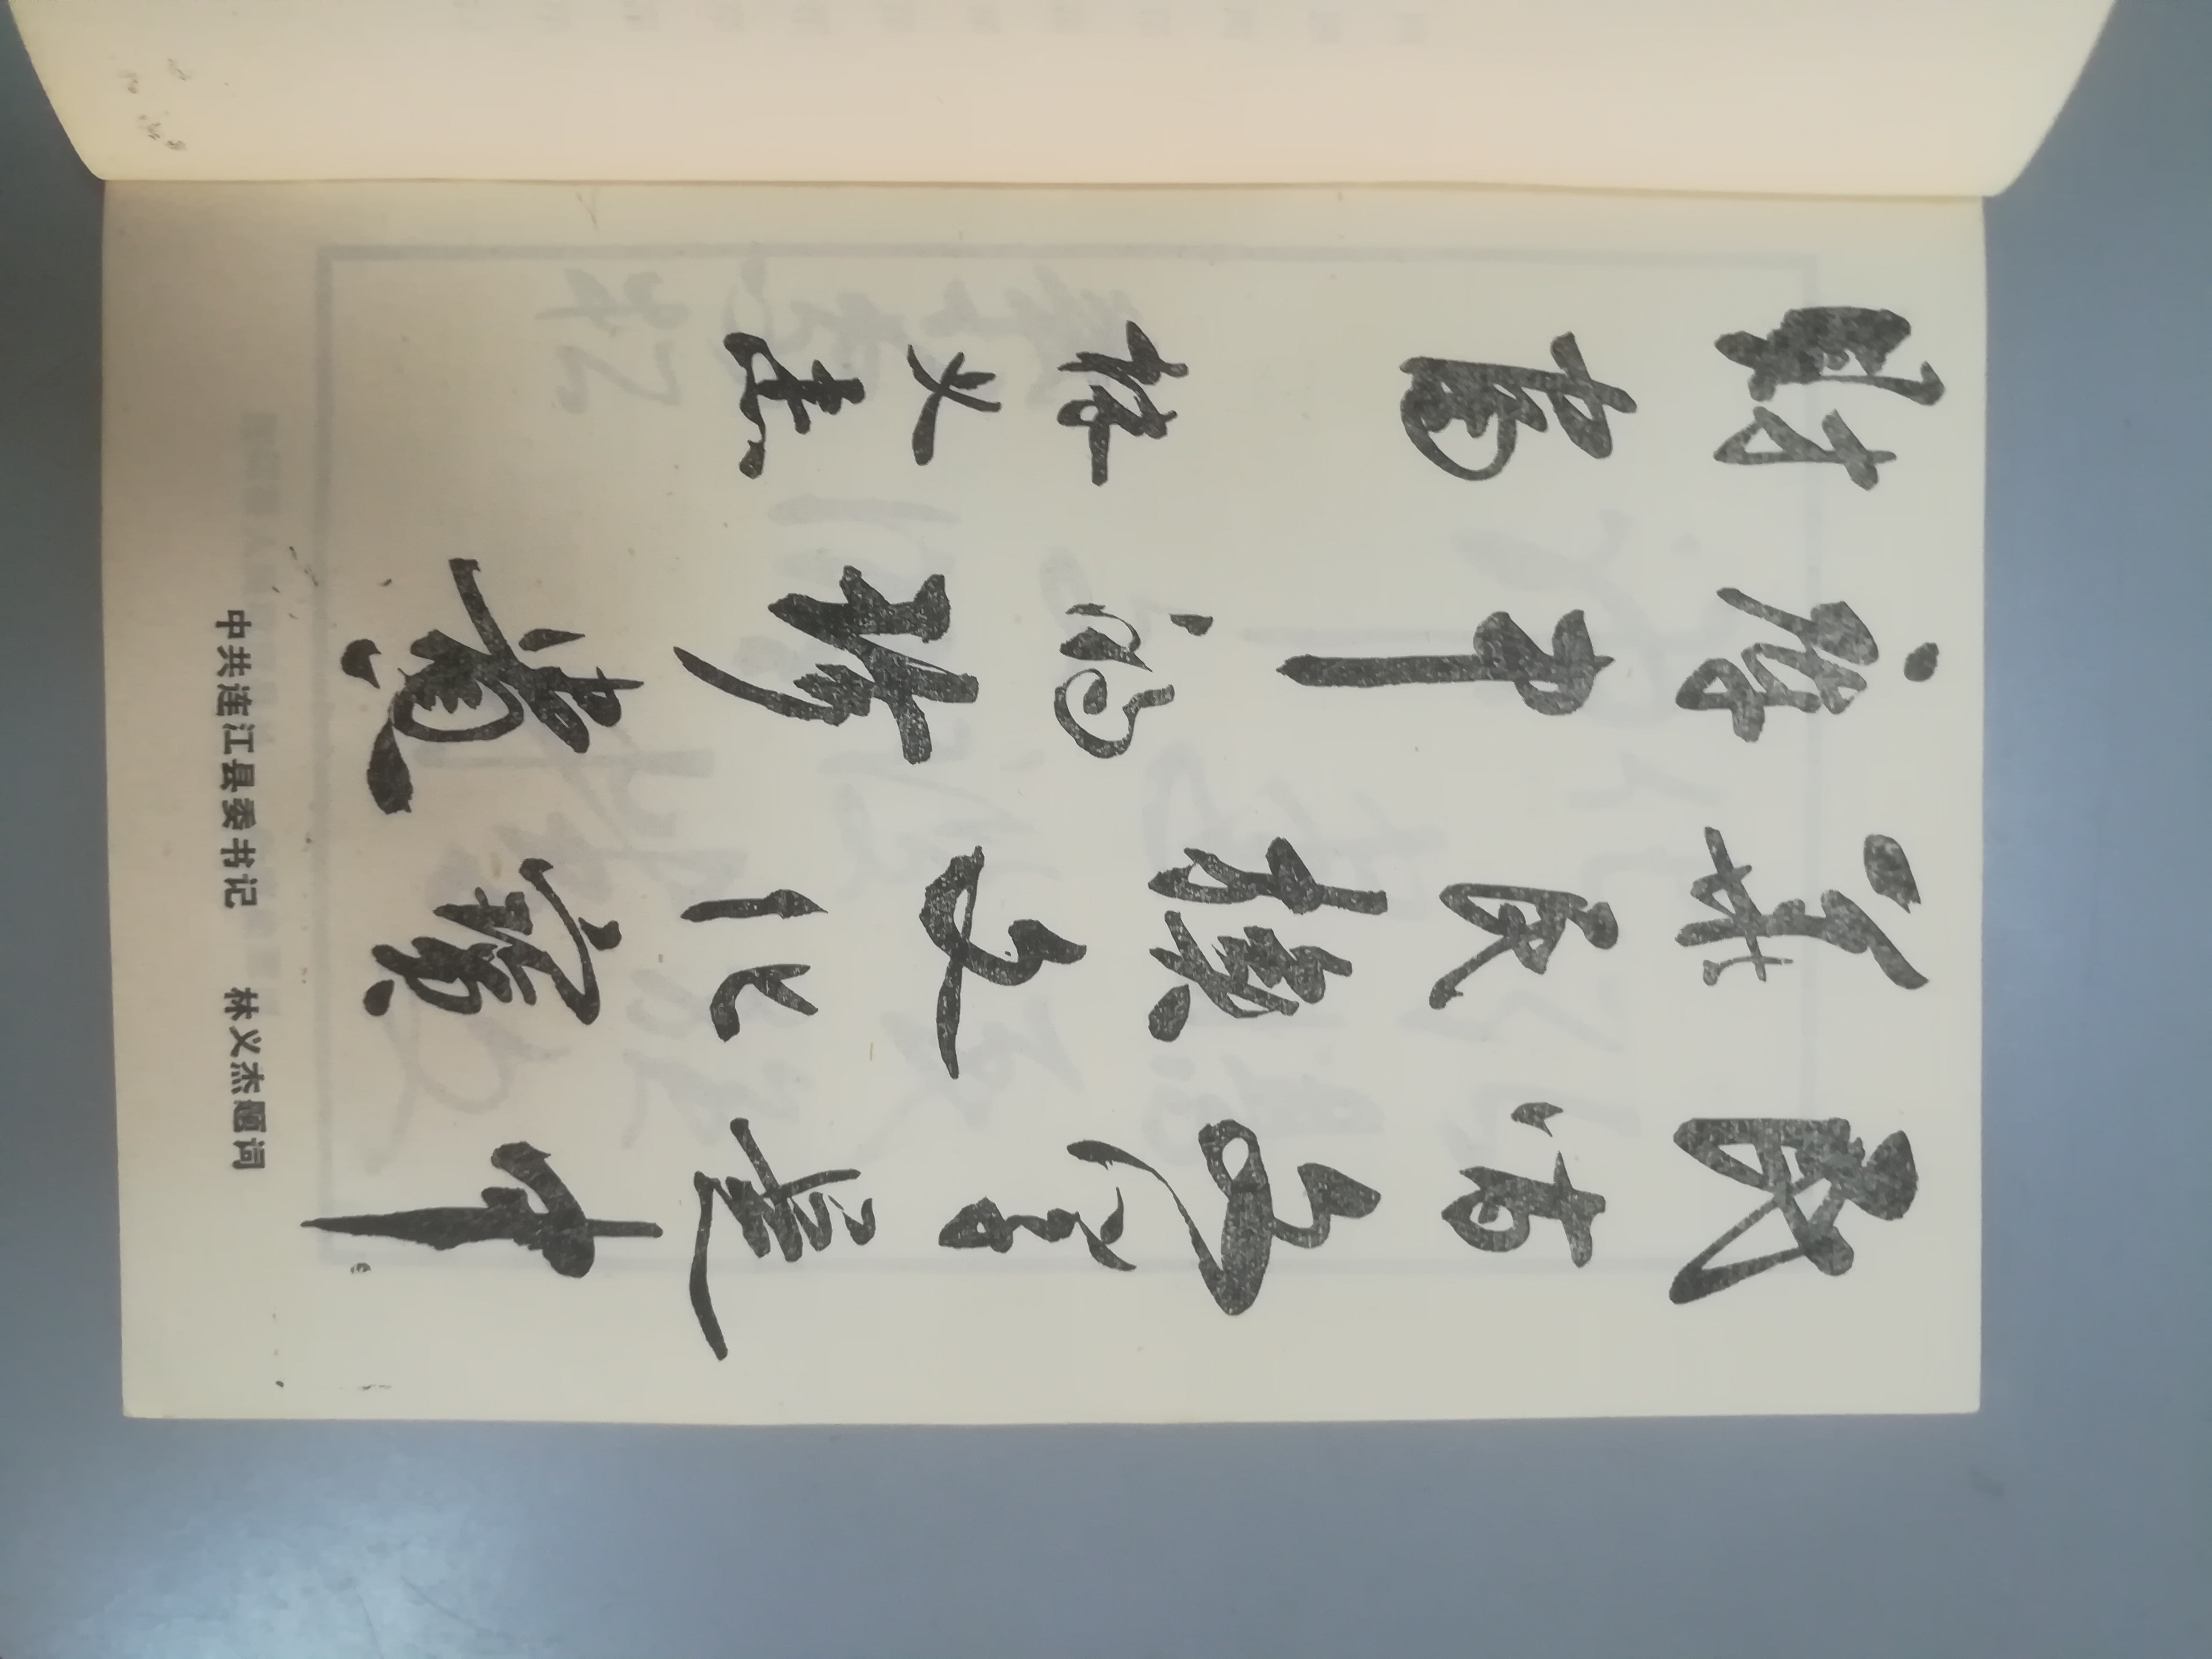 民间文学是中
華民族文化寳
库中的珍貴
財富 林义杰
中共连江县委书记 林义杰题词